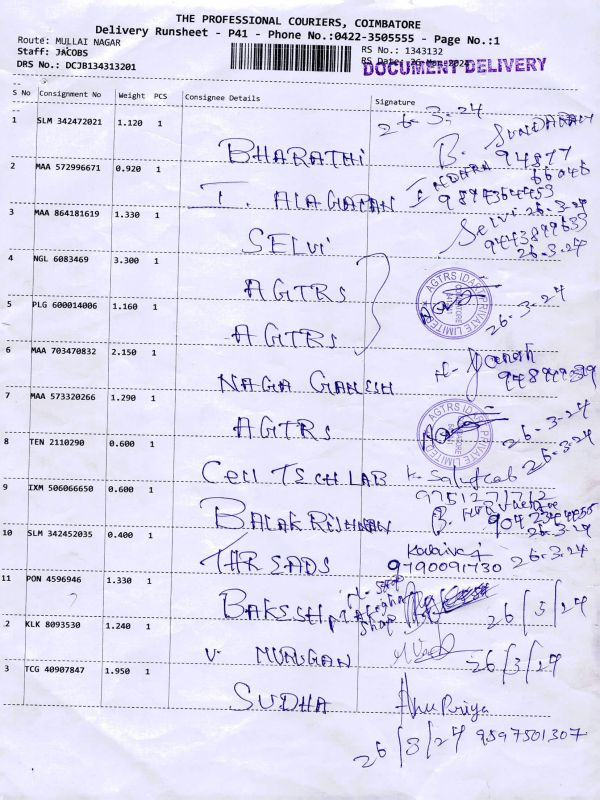 THE PROFESSIONAL COURIERS, COIMBATORE
Delivery Runsheet - P41 - Phone No.:0422-3505555 - Page No.:1
Route: MULLAI NAGAR
Staff: JACOBS
DRS No.: DCJB134313201
RS No.: 1343132
RS Date: 26-Mar-2024
DOCUMENT DELIVERY
S No Consignment No Weight PCS Consignee Details Signature
26-3-24
1 SLM 342472021 1.120 1 BHARATHI B. SUNDARAM
94877
66046
2 MAA 572996671 0.920 1 I. ALAGAPPAN
9894364453
26-3-24
3 MAA 864181619 1.330 1 SELVI Selvi
9443899633
26-3-24
4 NGL 6083469 3.300 1 AGTRS
AGTRS IDAS PRIVATE LIMITED
26-3-24
5 PLG 600014006 1.160 1 AGTRS
6 MAA 703470832 2.150 1 NAGA GANESH
7 MAA 573320266 1.290 1 AGTRS
AGTRS IDAS PRIVATE LIMITED
26-3-24
8 TEN 2110290 0.600 1 CELL TECH LAB
26-3-24
9751271712
9 IXM 506066650 0.600 1 BALAKRISHNAN B.
26-3-24
10 SLM 342452035 0.400 1 THREADS
9790091730 26-3-24
11 PON 4596946 1.330 1
26/3/24
2 KLK 8093530 1.240 1 V. MURUGAN
26/3/24
3 TCG 40907847 1.950 1 SUDHA Anu Priya
26/3/24 9597501307